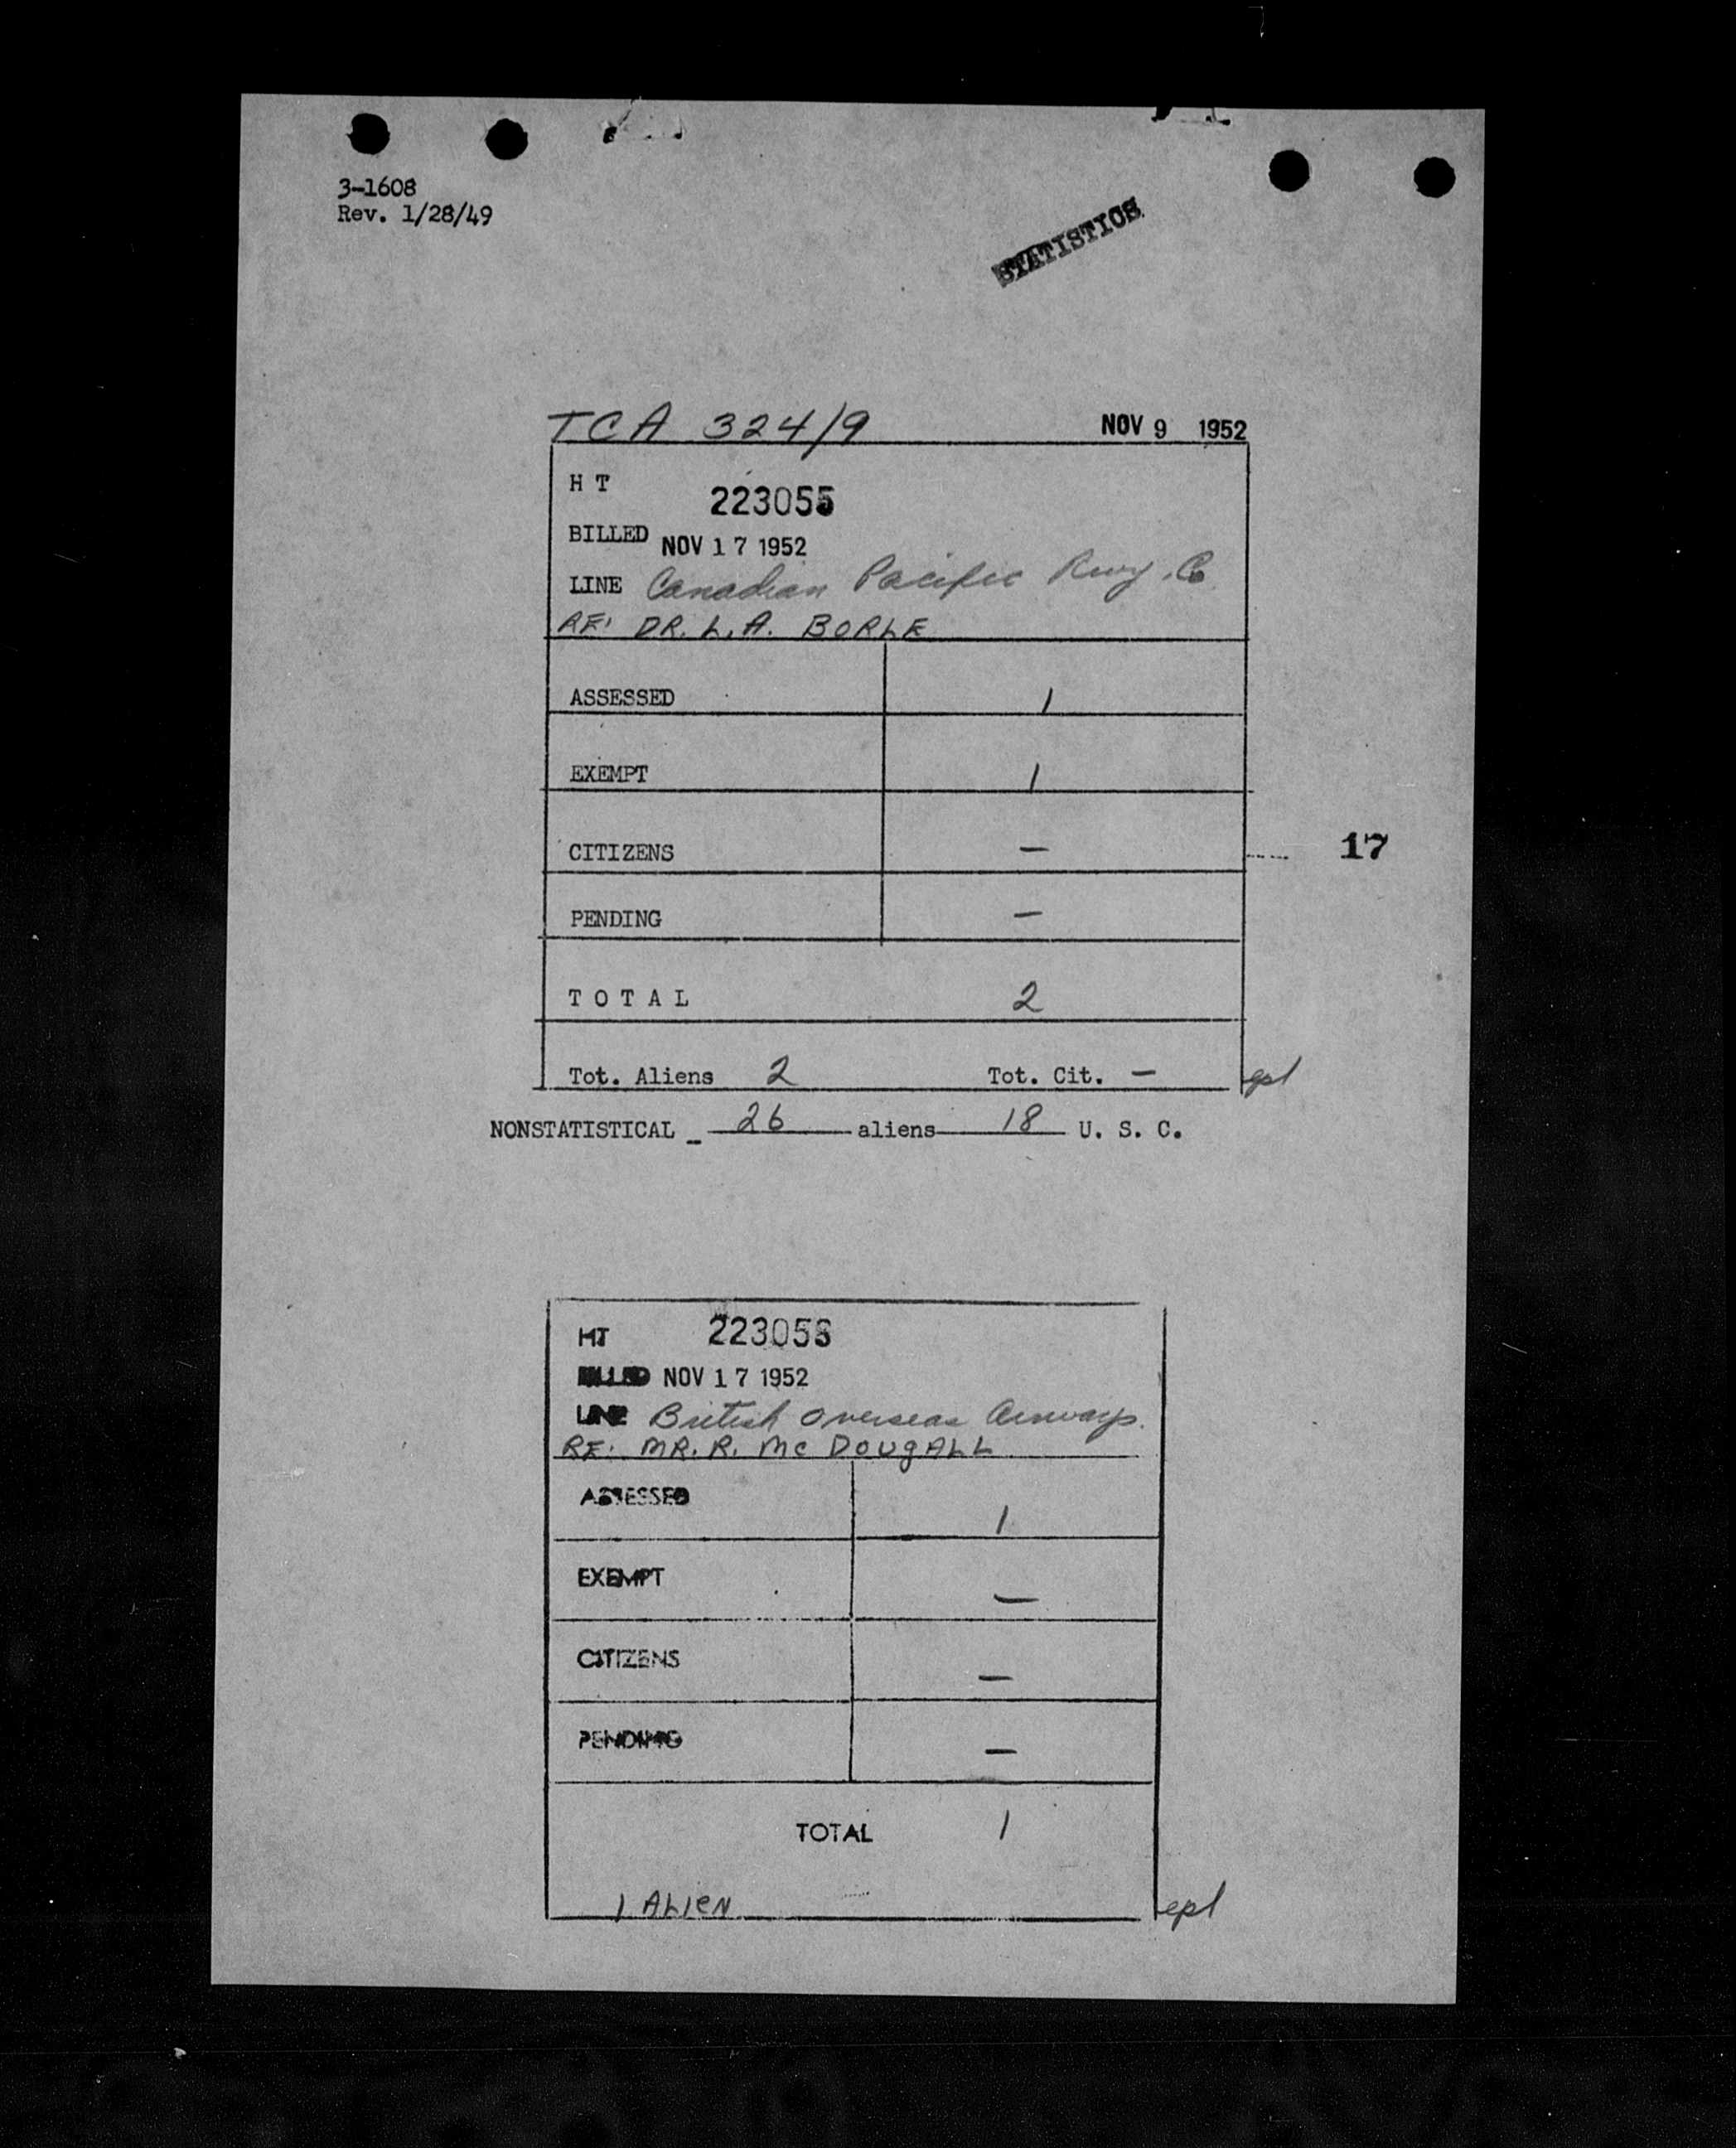 3-1608
Rev. 1/28/49
STATISTICS
TCA 324/9 NOV 9 1952
H T 223055
BILLED NOV 17 1952
LINE Canadian Pacific Rwy. Co
RE: DR. L. A. BORLE
ASSESSED 1
EXEMPT 1
CITIZENS — 17
PENDING —
T O T A L 2
Tot. Aliens 2 Tot. Cit. — epl
NONSTATISTICAL - 26 aliens 18 U. S. C.
HT 223056
BILLED NOV 17 1952
LINE British Overseas Airways.
RE: MR. R. Mc DOUgALL
ASSESSED 1
EXEMPT —
CITIZENS —
PENDING —
TOTAL 1
1 ALIeN epl